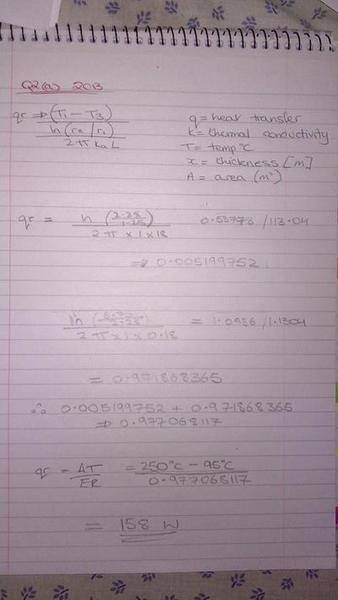 Q2(a) 2013
qr ⇒ (T1 - T3)
ln (r2/r1)
2π ka L
q = heat transfer
k = thermal conductivity
T = temp °C
x = thickness [m]
A = area (m²)
qr = ln
2π × 1 × 18
/113.04
⇒ 0.005199752
ln
2π × 1 × 0.18
= 1.0986 /1.1304
= 0.971868365
∴ 0.005199752 + 0.971868365
⇒ 0.977068117
qr = ΔT = 250°C - 95°C
ER 0.977068117
= 158 W